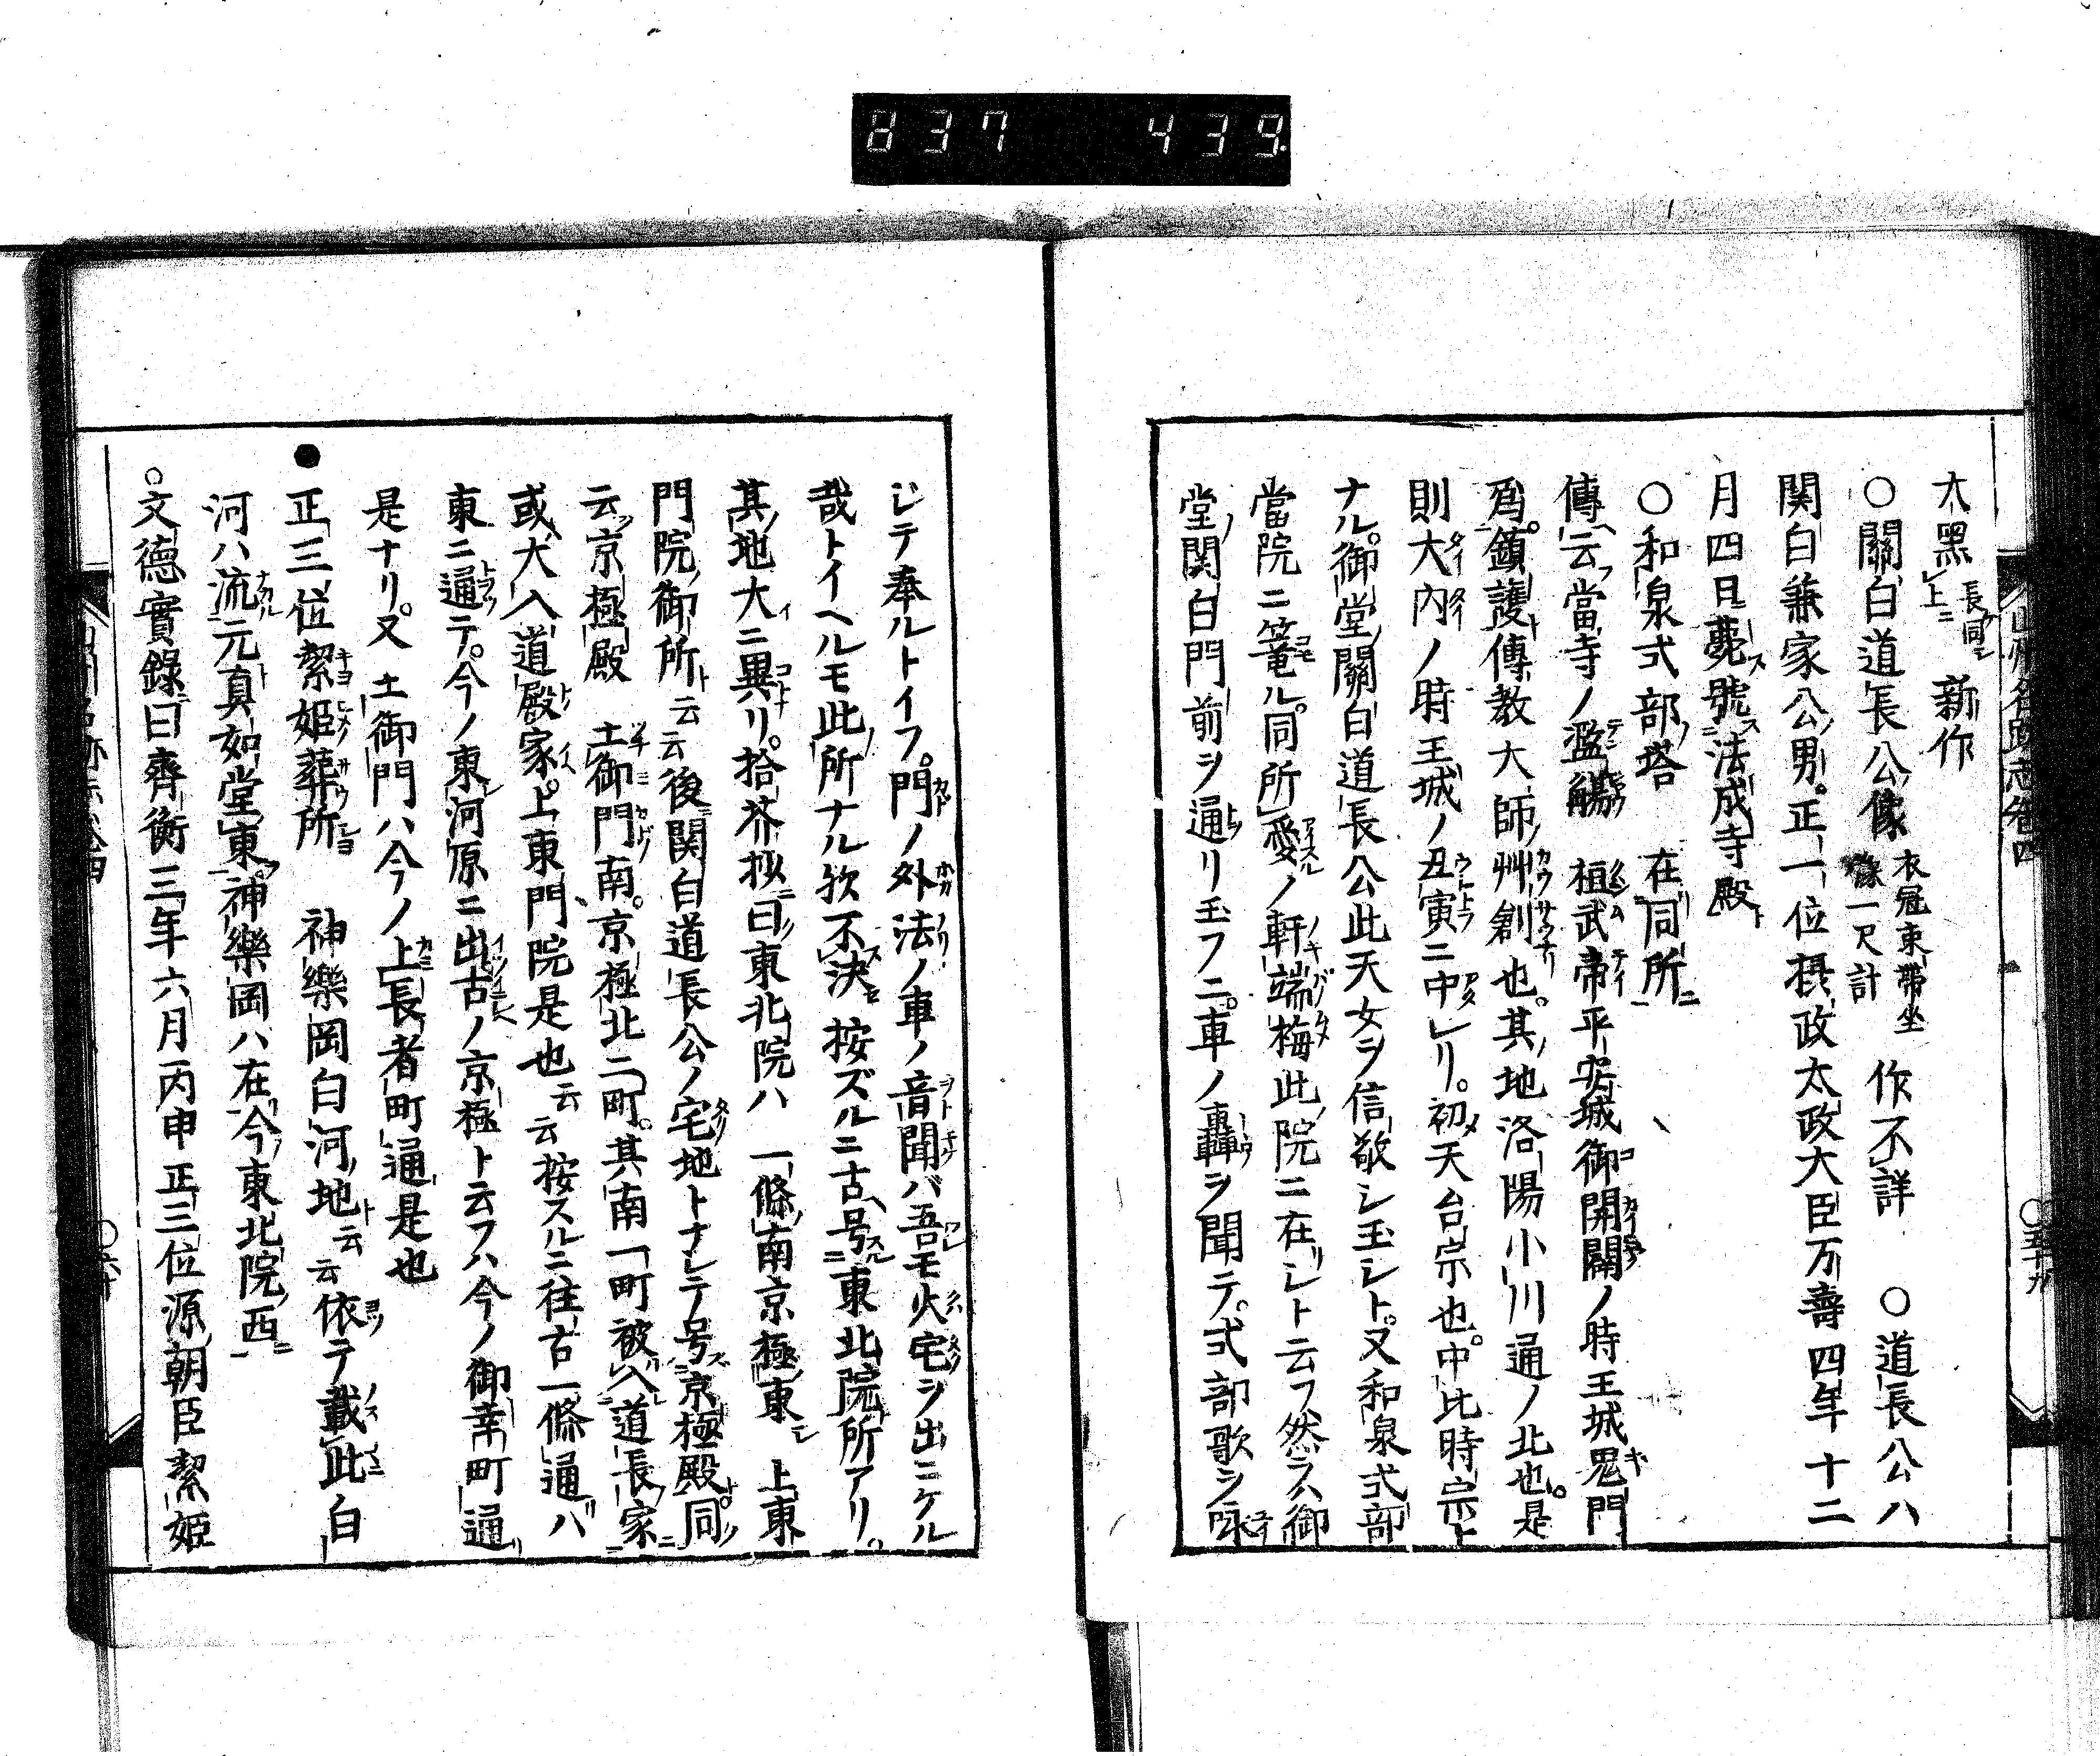 837 439
大黒 長同上ニ 新作
○關白道長公像 衣冠束帶坐像一尺計 作不詳 ○道長公ハ
関白兼家公ノ男。正一位摂政太政大臣万壽四年十二
月四日薨ス號ス法成寺殿ト
○和泉式部ノ塔 在同所ニ
傳ヘ云フ當寺ノ濫觴 桓武帝平安城御開闢ノ時王城鬼門
爲鎮護傳教大師ノ艸創也。其ノ地洛陽小川通ノ北也。是
則大内ノ時王城ノ丑寅ニ中レリ。初メ天台宗也。中比時宗ト
ナル。御堂關白道長公此天女ヲ信敬シ玉レト。又和泉式部
當院ニ篭ル。同所愛ノ軒端ノ梅此ノ院ニ在リシト云フ然ラハ御
堂ノ関白門前ヲ通リ玉フニ。車ノ轟ヲ聞テ。式部歌ヲ詠
ジテ奉ルトイフ。門ノ外法ノ車ノ音聞バ吾モ火宅ヲ出ニケル
哉トイヘルモ此ノ所ナル欤不決セ 按ズルニ古ヘ号スル東北院ト所アリ。
其ノ地大ニ異リ。拾芥抄ニ曰ク東北院ハ 一條ノ南京極ノ東 上東
門院ノ御所ト云云後ニ関白道長公ノ宅地トナシテ号ス京極殿ト同ク
云フ京極殿 土御門南。京極ノ北二町。其ノ南一町被入道長家ニ
或ハ大入道殿ノ家。上東門院是也云云按スルニ往古一條通リハ
東ニ通テ。今ノ東河原ニ出古ノ京極ト云フハ今ノ御幸町通リ
是ナリ。又 土御門ハ今ノ上長者町通是也
●正三位絜姫葬所 神樂岡白河ノ地ト云云依テ載此ニ白
河ハ流元真如堂ノ東。神樂岡ハ在今ノ東北院ノ西ニ
○文德實錄ニ曰齊衡三年六月丙申正三位源ノ朝臣絜姫